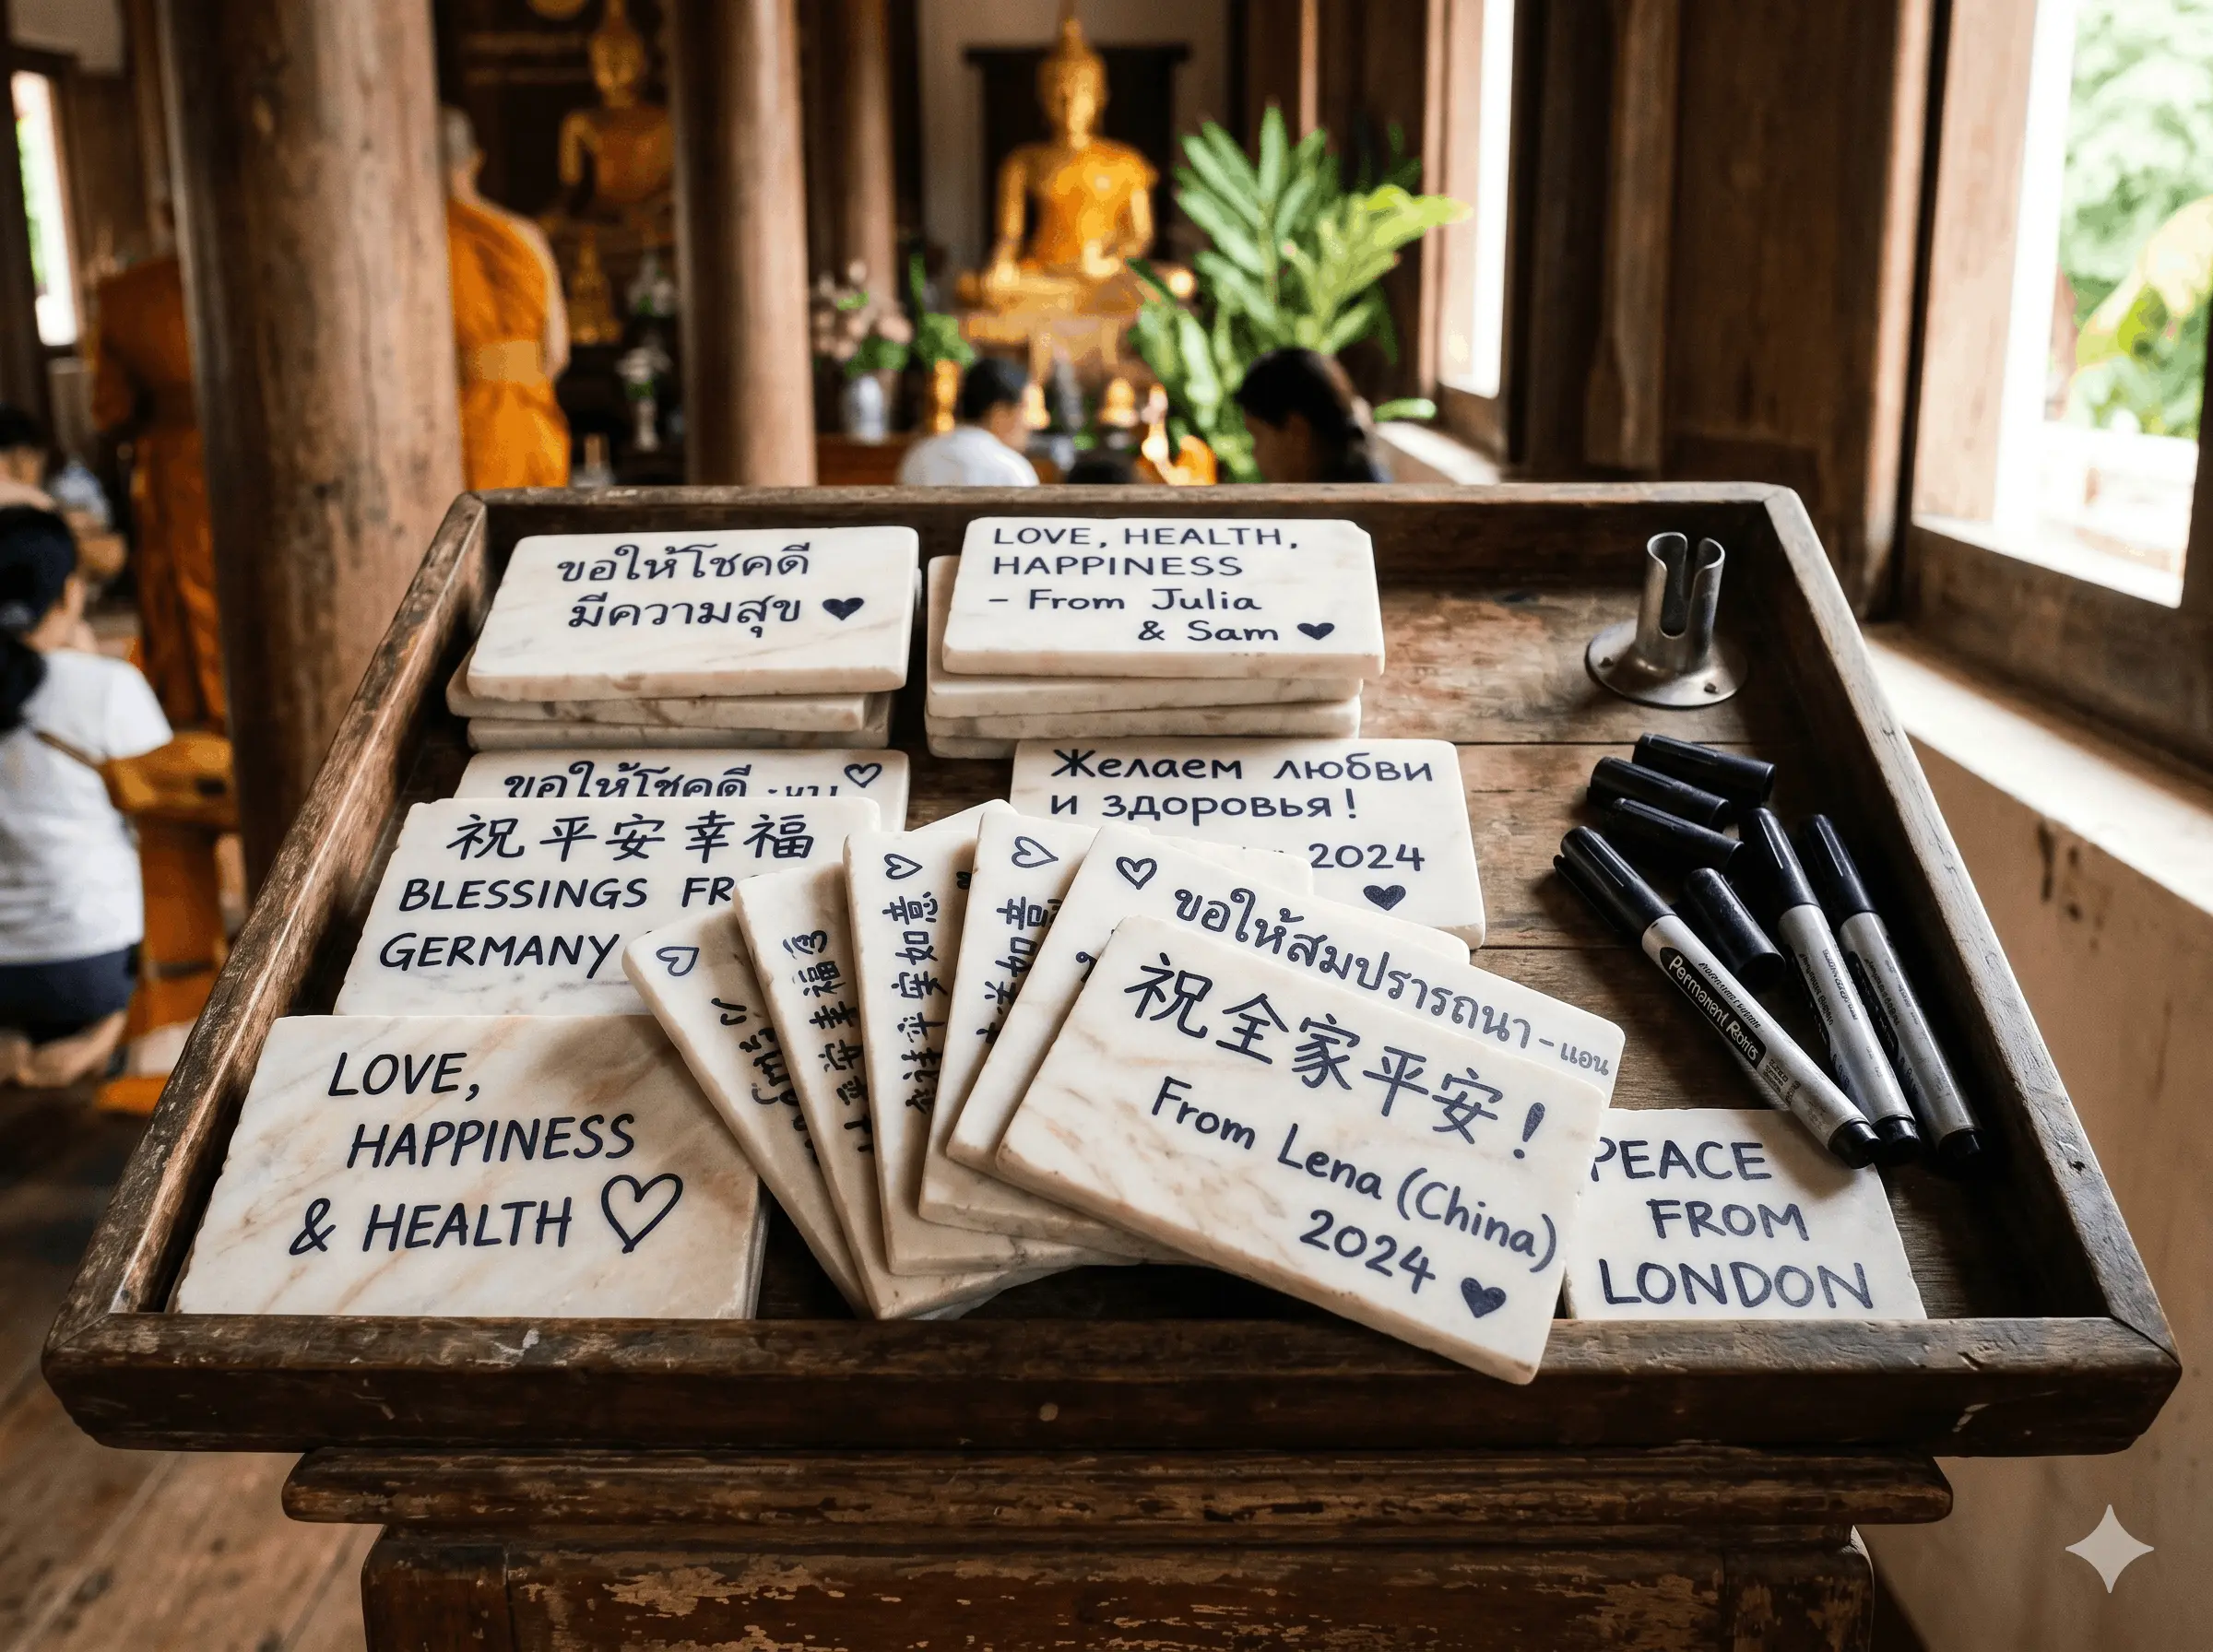 ขอให้โชคดี
มีความสุข
LOVE, HEALTH,
HAPPINESS
- From Julia
& Sam
ขอให้โชคดี
祝平安幸福
BLESSINGS
GERMANY
Желаем любви
и здоровья!
2024
LOVE,
HAPPINESS
& HEALTH
平安如意
ขอให้สมปรารถนา - แอน
祝全家平安!
From Lena (China)
2024
PEACE
FROM
LONDON
Permanent